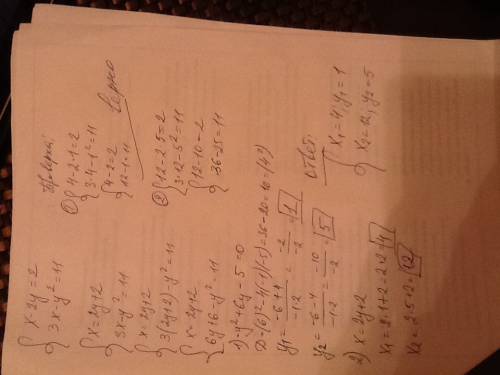 { x-2y=2
{ 3x-y²=11
{ x=2y+2
{ 3x-y²=11
{ x=2y+2
{ 3(2y+2)-y²=11
{ x=2y+2
{ 6y+6-y²=11
1) -y²+6y-5=0
D=(6)²-4(-1)(-5)=36-20=16=(4²)
y₁= -6+4 / -1·2 = -2 / -2 = 1
y₂= -6-4 / -1·2 = -10 / -2 = 5
2) x=2y+2
x₁=2·1+2=2+2=4
x₂=2·5+2=12
Проверка:
① { 4-2·1=2
{ 3·4-1²=11
{ 4-2=2
{ 12-1=11
верно
② { 12-2·5=2
{ 3·12-5²=11
{ 12-10=2
{ 36-25=11
Ответ:
{ x₁=4, y₁=1
{ x₂=12, y₂=5